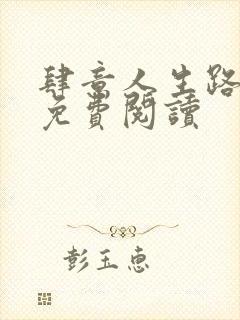 肆意人生路
免費閱讀
彭玉惠